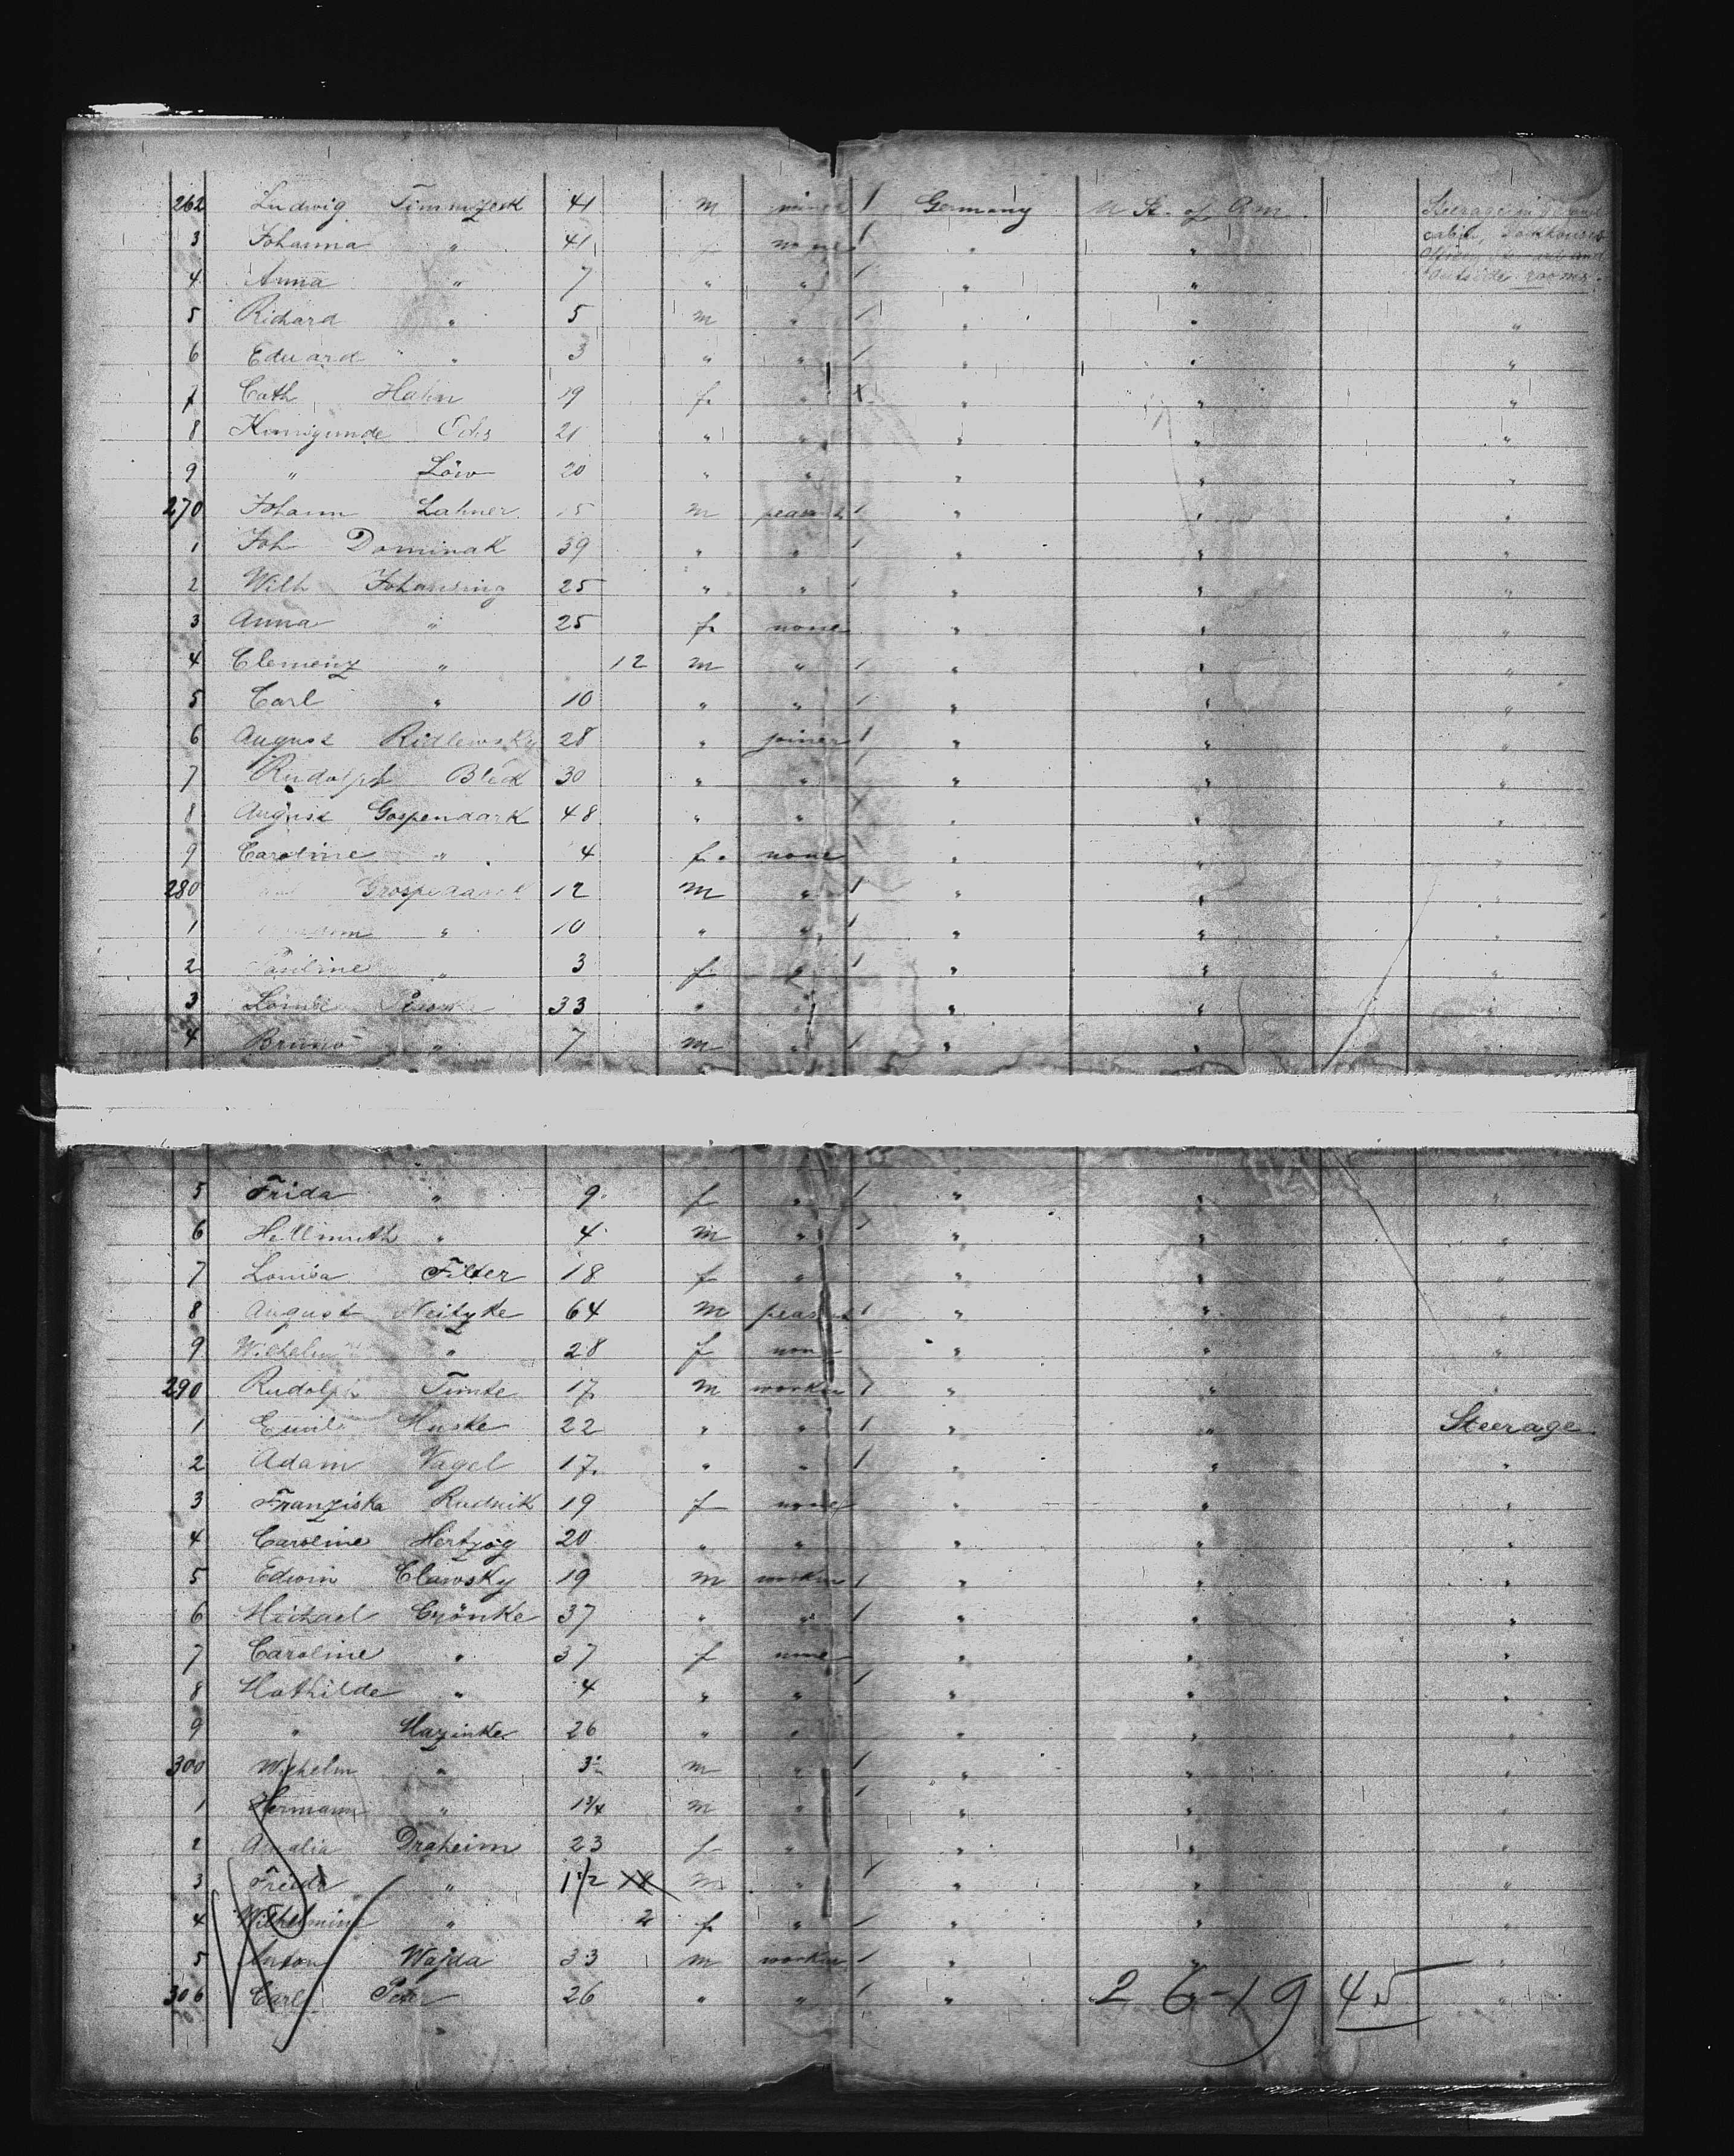 262 Ludwig Timmzeck 41 m miner 1 Germany U St. of Am. Steerage in
3 Johanna " 41 none 1 " " cabin,
4 Anna " 7 " " 1 " " outside rooms.
5 Richard " 5 m " 1 " " "
6 Eduard " 3 " " 1 " " "
7 Cath Hahn 19 f. " X " " "
8 Kunigunde 21 " " " " "
9 " Löw 20 " " " " "
270 Johann Lahner m peasant 1 " " "
1 Joh Dominak 39 " " 1 " " "
2 Wilh Johansing 25 " " 1 " " "
3 Anna " 25 f. none " " "
4 Clemenz " 12 m " 1 " " "
5 Carl " 10 " " 1 " " "
6 August Ridlewsky 28 " joiner 1 " " "
7 Rudolph Bleck 30 " " " " "
8 August Gospendark 48 " " X " " "
9 Caroline " 4 f. none " " "
280 12 m " 1 " " "
1 " 10 " " 1 " " "
2 Pauline " 3 f " 1 " " "
3 33 " " " " "
4 Bruno " 7 m " 1 " " "
5 Frida " 9 f " 1 " " "
6 Hellmuth " 4 m " 1 " " "
7 Louisa Filter 18 f " " " "
8 August Neitzke 64 m peasant 1 " " "
9 Wilhelmine " 28 f none " " "
290 Rudolph Timte 17 m worker 1 " " "
1 Emil Muske 22 " " 1 " " Steerage
2 Adam Vagel 17 " " 1 " " "
3 Franziska Rudnik 19 f none " " "
4 Caroline Hertzog 20 " " " " "
5 Edwin Clawsky 19 m worker 1 " " "
6 Michael Crönke 37 " " 1 " " "
7 Caroline " 37 f none " " "
8 Mathilde " 4 " " 1 " " "
9 " Mazinke 26 " " " " "
300 Wilhelm " 3 m " 1 " " "
1 Hermann " 1 3/4 m " 1 " " "
2 Amalia Draheim 23 f " " " "
3 Frieda " 1 1/2 m " 1 " " "
4 Wilhelmine " 2 f " 1 " " "
5 Anton Wajda 33 m worker 1 " " "
306 Carl Peter 26 " " 1 " "
26-19 45